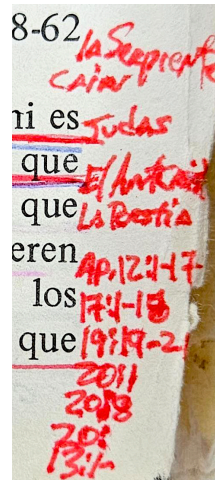 8-62
la Serpiente
Cain
ni es
Judas
que
El Anticri
que
La Bestia
eren
Ap.12:1-17
los
17:1-18
que
19:19-2
2011
2018
20:
13:1-